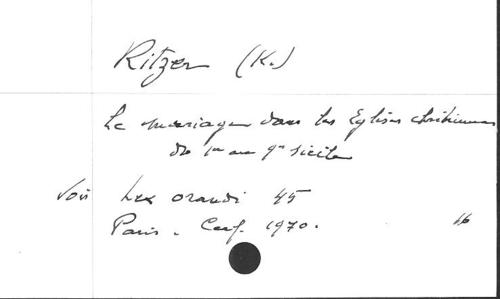 Ritzer (K.)
Le mariage dans les Eglises chrétiennes
du 1er au 9e siècle
Voir Lex orandi 45
Paris. Cerf. 1970.